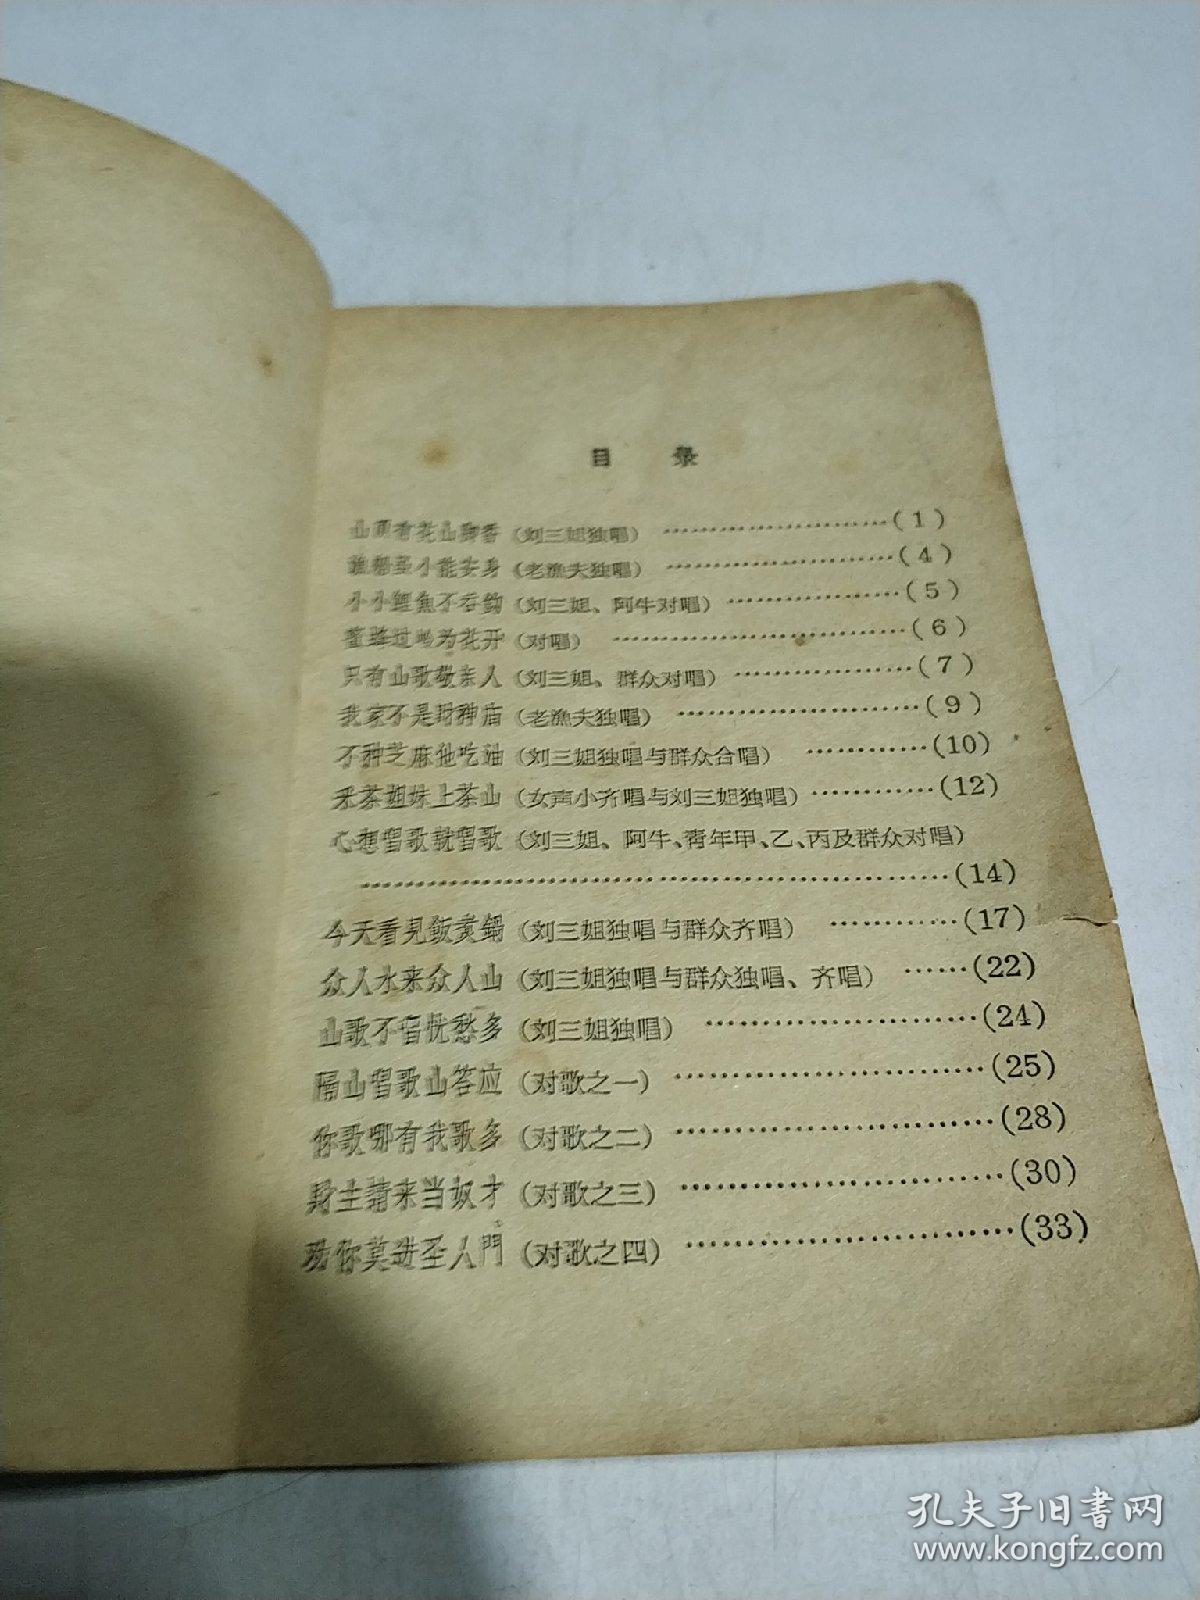 目 录
山顶有花山脚香（刘三姐独唱）……………………(1)
虽小能安身（老渔夫独唱）……………………(4)
小小鲤鱼不吞钩（刘三姐、阿牛对唱）………………(5)
过为花开（对唱）…………………………(6)
只有山歌敬亲人（刘三姐、群众对唱）………………(7)
我家不是财神庙（老漁夫独唱）……………………(9)
不种芝麻他吃油（刘三姐独唱与群众合唱）…………(10)
采茶姐妹上茶山（女声小齐唱与刘三姐独唱）…………(12)
心想唱歌就唱歌（刘三姐、阿牛、青年甲、乙、丙及群众对唱）
……………………………………………………(14)
今天看見飯煑鍋（刘三姐独唱与群众齐唱）…………(17)
众人水来众人山（刘三姐独唱与群众独唱、齐唱）……(22)
山歌不唱忧愁多（刘三姐独唱）………………………(24)
隔山唱歌山答应（对歌之一）…………………………(25)
你歌哪有我歌多（对歌之二）…………………………(28)
財主請来当奴才（对歌之三）…………………………(30)
劝你莫进圣人門（对歌之四）…………………………(33)
孔夫子旧书网
www.kongfz.com